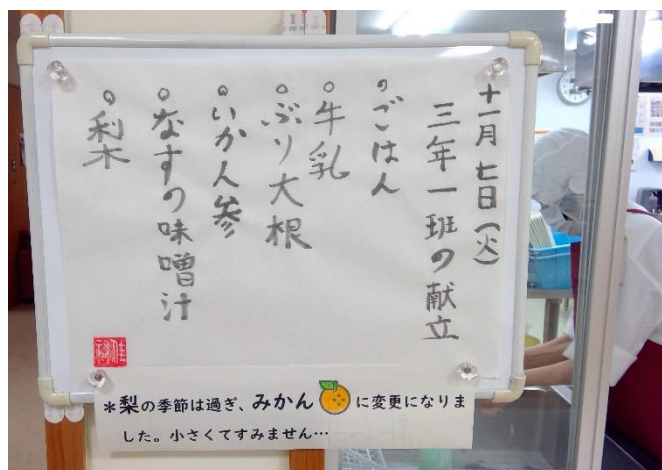 十一月七日（火）
三年一班の献立
○ごはん
○牛乳
○ぶり大根
○いか人参
○なすの味噌汁
○梨
＊梨の季節は過ぎ、みかんに変更になりま
した。小さくてすみません…